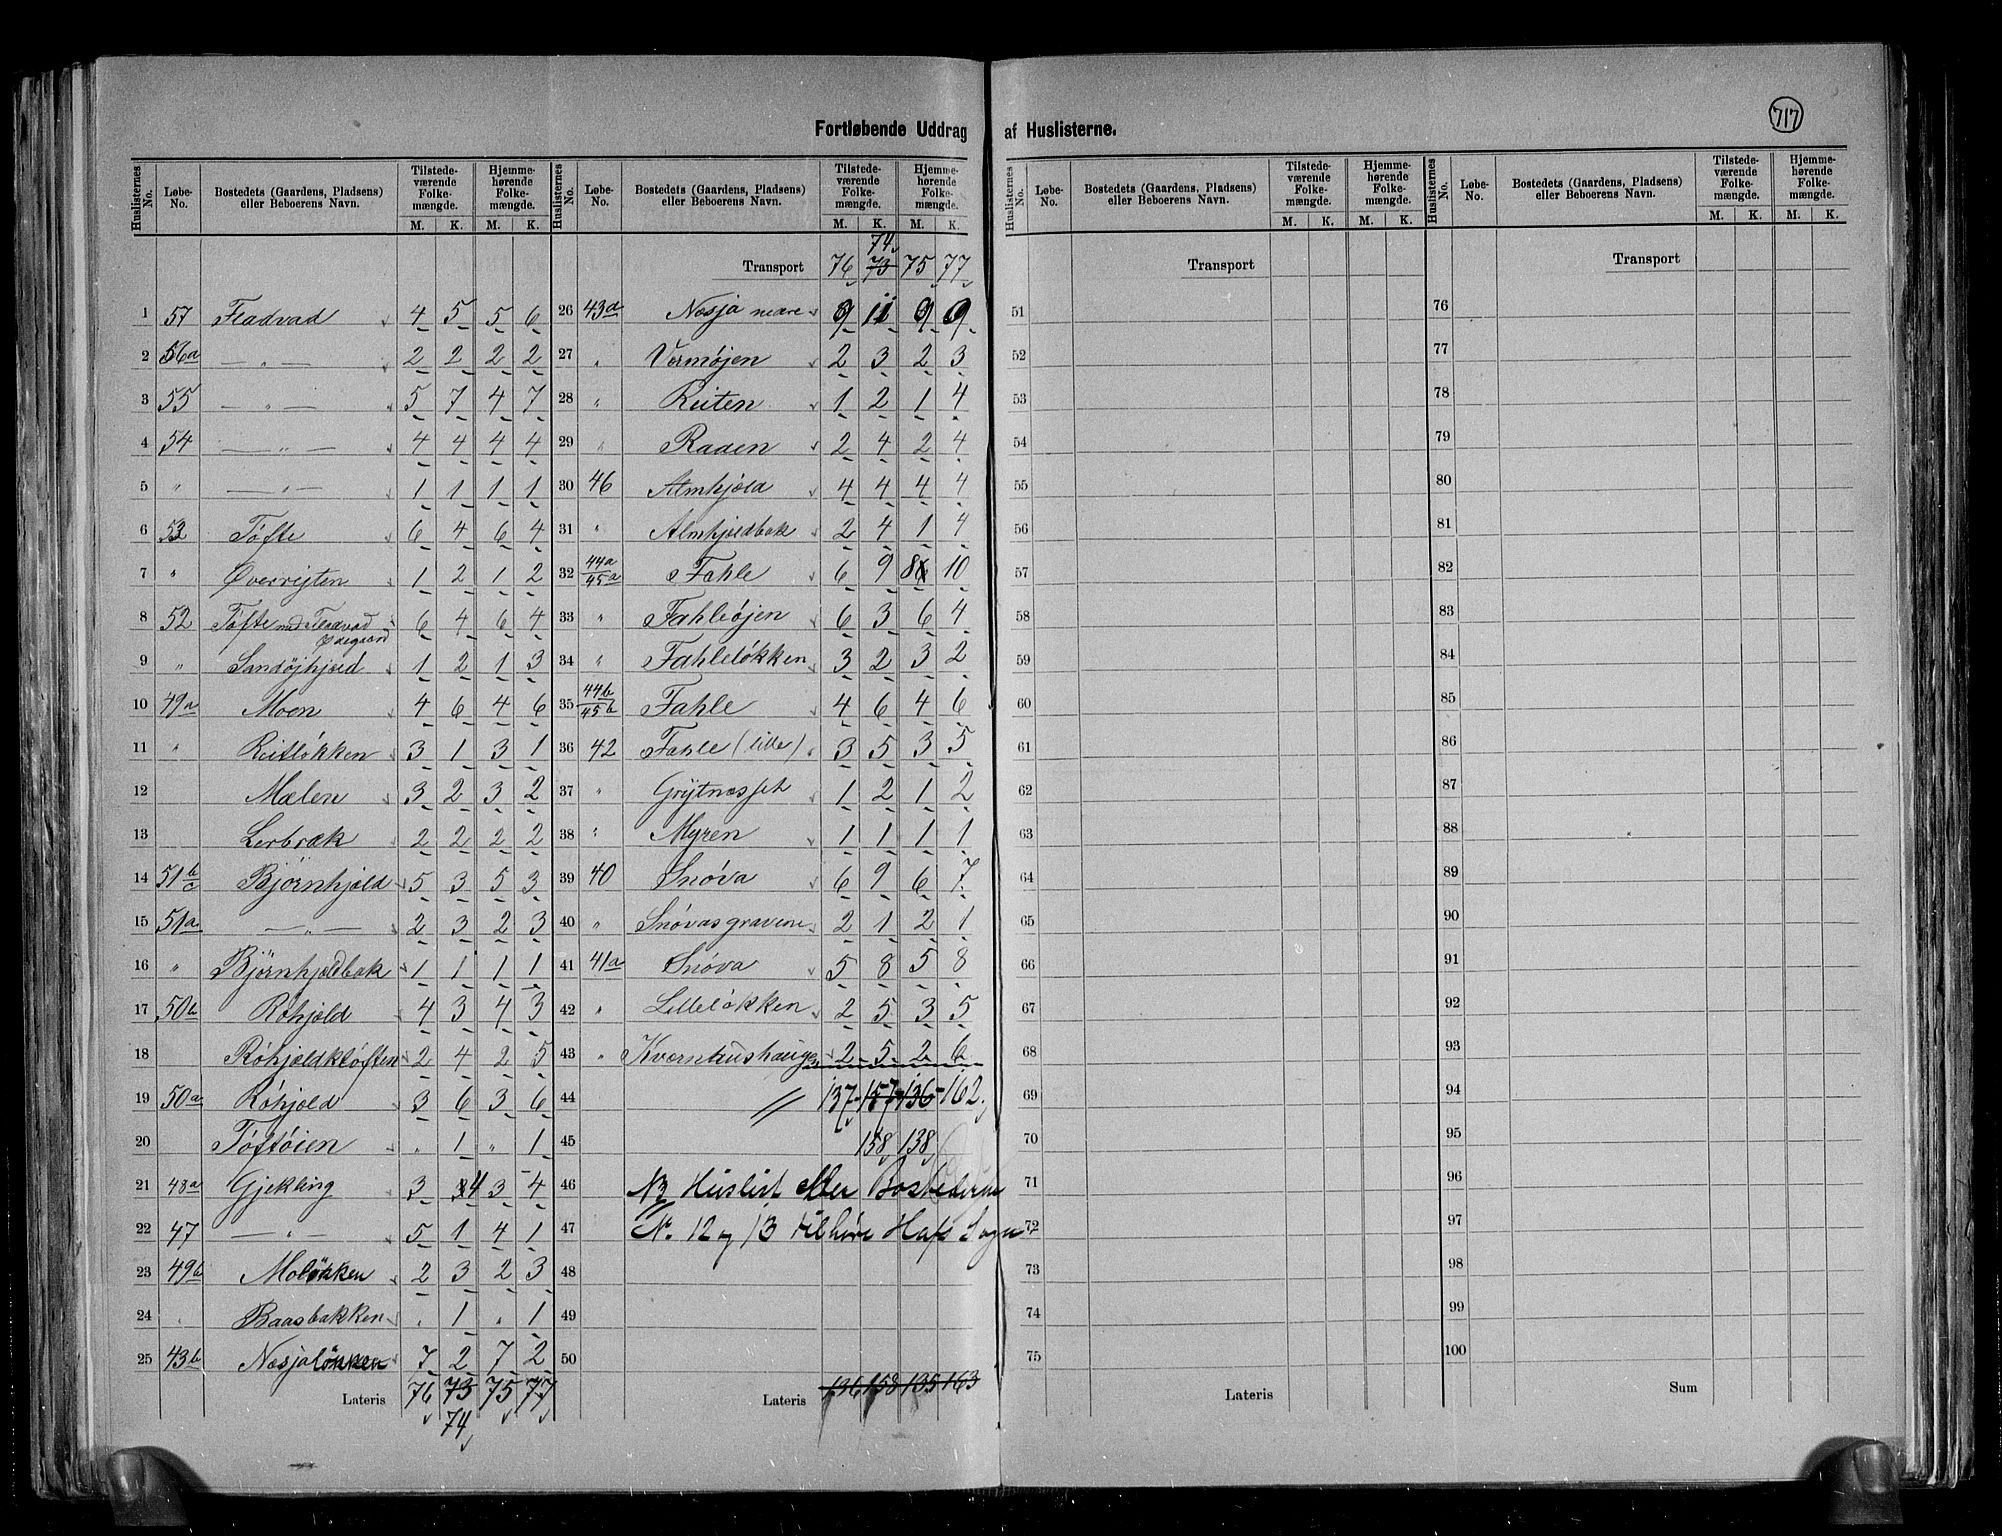 717
Fortløbende Uddrag af Huslisterne.
Huslisternes No. Løbe-No. Bostedets (Gaardens, Pladsens) eller Beboerens Navn. Tilstede-værende Folke-mængde. M. K. Hjemme-hørende Folke-mængde. M. K.
1 57 Fladvad 4 5 5 6
2 56a — " — 2 2 2 2
3 55 — " — 5 7 4 7
4 54 — " — 4 4 4 4
5 " — " — 1 1 1 1
6 53 Tøfte 6 4 6 4
7 " Øverrejten 1 2 1 2
8 52 Tøfte med Fladvad Ødegaard 6 4 6 4
9 " Sandøjhjeld 1 2 1 3
10 49a Moen 4 6 4 6
11 " Reitløkken 3 1 3 1
12 Mælen 3 2 3 2
13 Lerbræk 2 2 2 2
14 51 b/c Bjørnhjeld 5 3 5 3
15 51a — " — 2 3 2 3
16 " Bjørnhjeldbak 1 1 1 1
17 50b Røhjeld 4 3 4 3
18 Røhjeldkløften 2 4 2 5
19 50a Røhjeld 3 6 3 6
20 Tøftøien " 1 " 1
21 48a Gjekling 3 4 3 4
22 47 — " — 5 1 4 1
23 49b Moløkken 2 3 2 3
24 Baasbakken " 1 " 1
25 43b Næsjaløkken 7 2 7 2
Lateris 76 73 75 77
74
Huslisternes No. Løbe-No. Bostedets (Gaardens, Pladsens) eller Beboerens Navn. Tilstede-værende Folke-mængde. M. K. Hjemme-hørende Folke-mængde. M. K.
74
Transport 76 73 75 77
26 43a Næsja nedre 9 11 9 9
27 " Vermøjen 2 3 2 3
28 " Reiten 1 2 1 4
29 " Raaen 2 4 2 4
30 46 Almhjeld 4 4 4 4
31 " Almhjeldbak 2 4 1 4
32 44a/45a Fahle 6 9 8 10
33 " Fahleøjen 6 3 6 4
34 " Fahleløkken 3 2 3 2
35 44b/45b Fahle 4 6 4 6
36 42 Fahle (lille) 3 5 3 5
37 " Grytnæsset 1 2 1 2
38 " Myren 1 1 1 1
39 40 Snøva 6 9 6 7
40 " Snøvasgravene 2 1 2 1
41 41a Snøva 5 8 5 8
42 " Lilleløkken 2 5 3 5
43 " Kværnhushaugen 2 5 2 6
44 137 157 136 162
45 158 138
46 NB Huslist eller Bostederne
47 N. 12 og 13 tilhøre Hafs Sogn
48
49
50
Lateris 136 158 135 163
Huslisternes No. Løbe-No. Bostedets (Gaardens, Pladsens) eller Beboerens Navn. Tilstede-værende Folke-mængde. M. K. Hjemme-hørende Folke-mængde. M. K.
Transport
51
52
53
54
55
56
57
58
59
60
61
62
63
64
65
66
67
68
69
70
71
72
73
74
75
Lateris
Huslisternes No. Løbe-No. Bostedets (Gaardens, Pladsens) eller Beboerens Navn. Tilstede-værende Folke-mængde. M. K. Hjemme-hørende Folke-mængde. M. K.
Transport
76
77
78
79
80
81
82
83
84
85
86
87
88
89
90
91
92
93
94
95
96
97
98
99
100
Sum